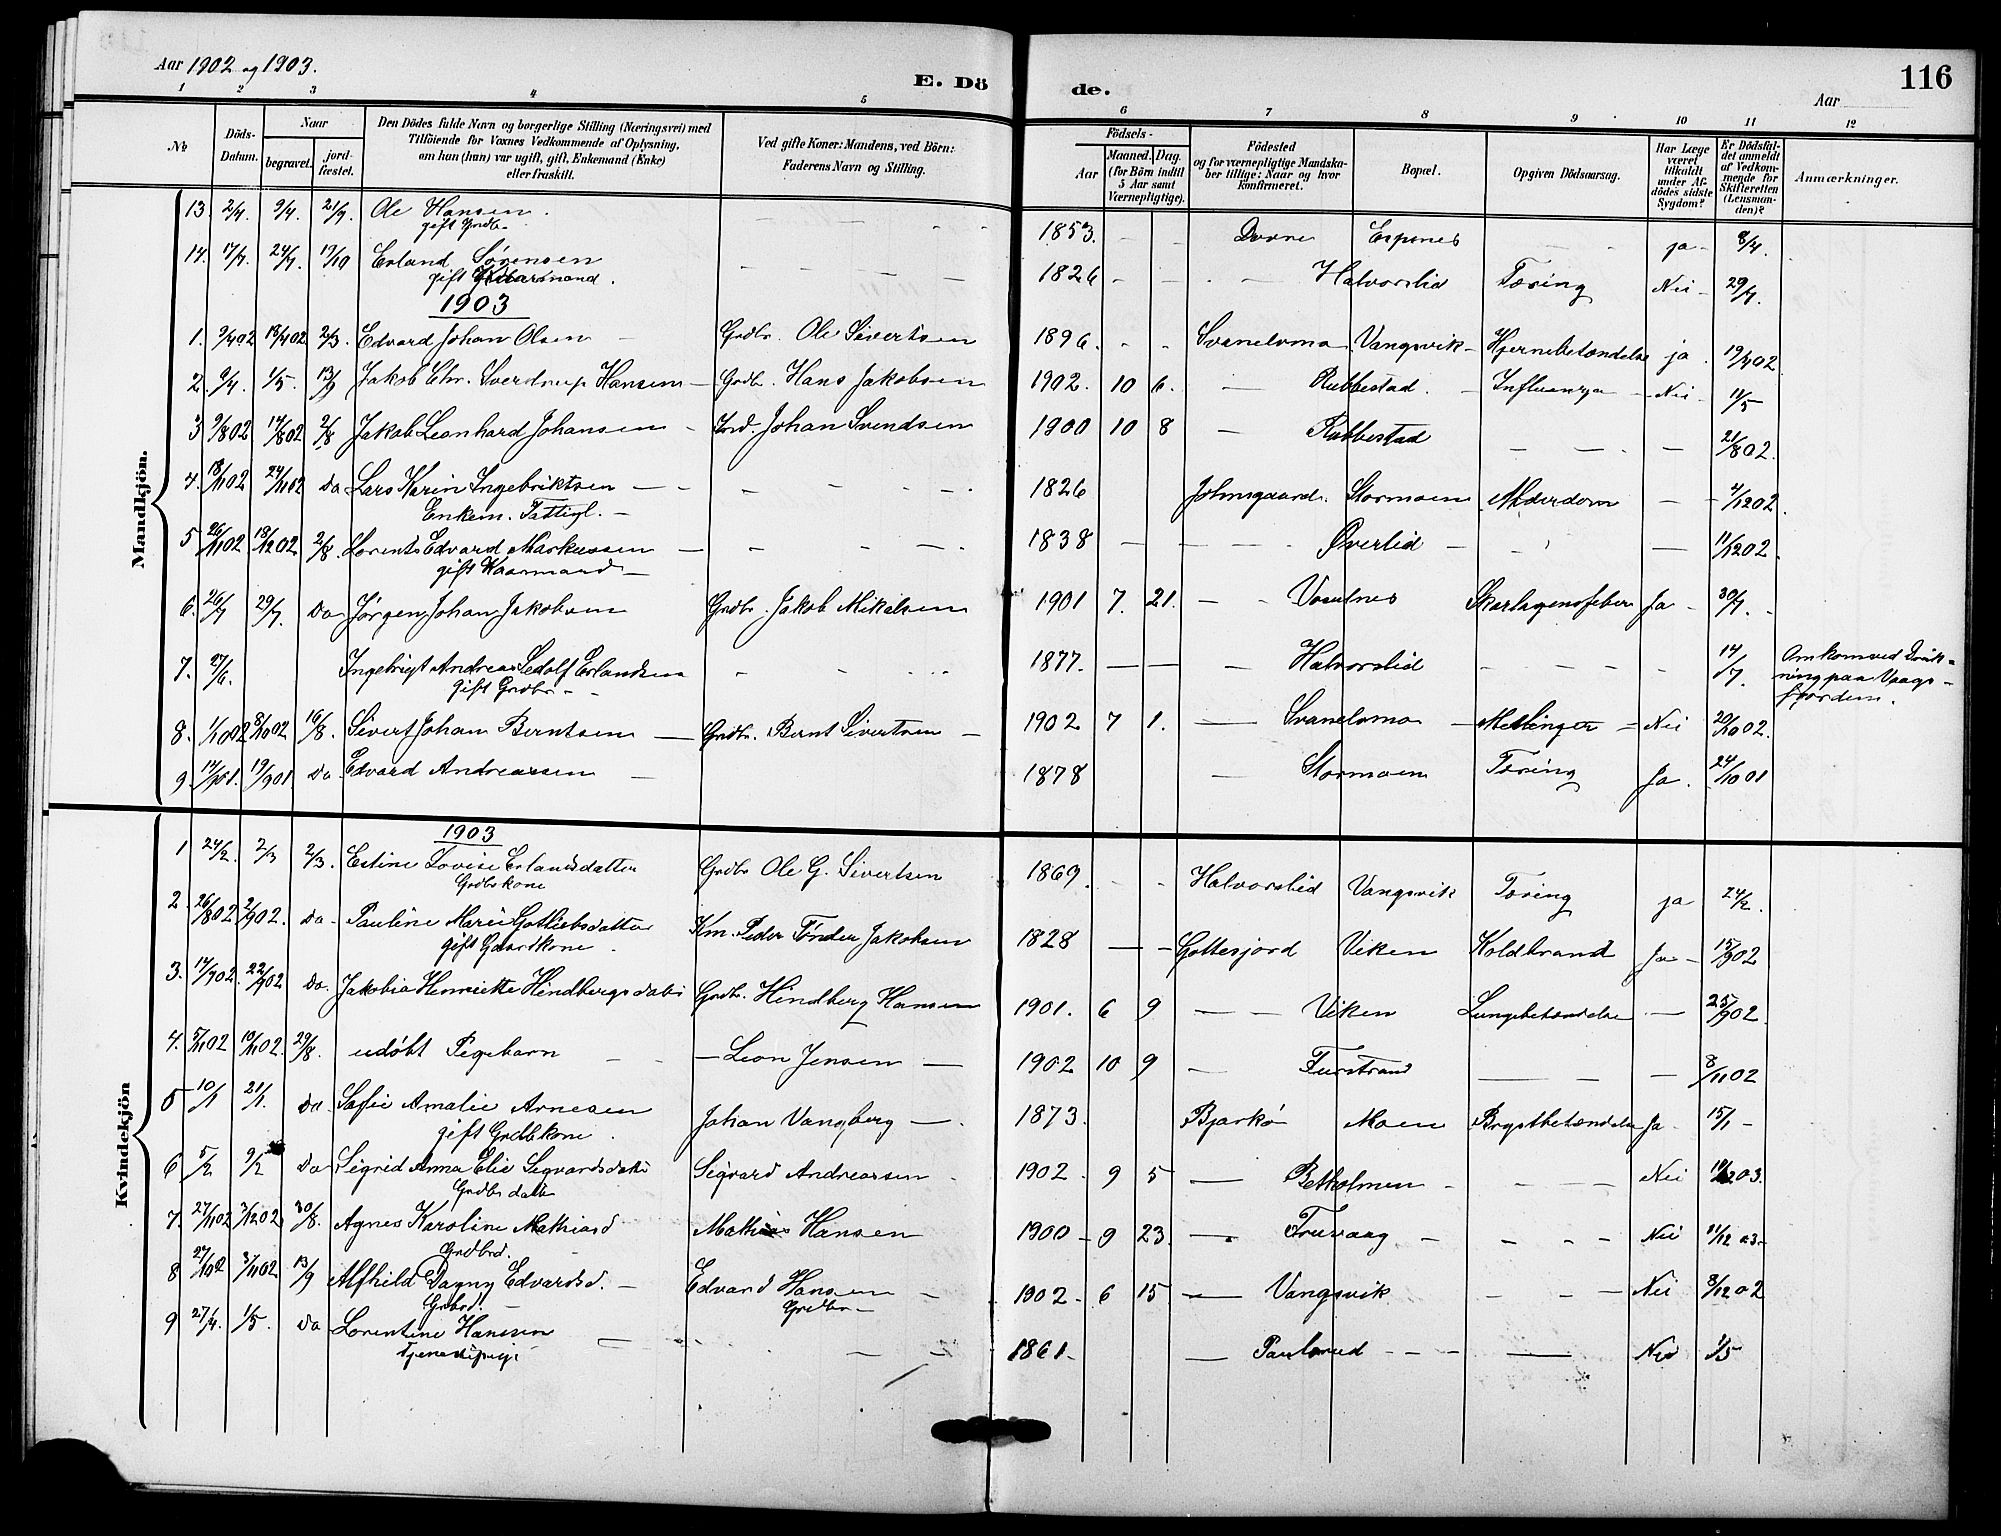 Aar 1902 og 1903.
E. Dö de.
Aar
116
1 2 3 4 5 6 7 8 9 10 11 12
№
Döds-Datum.
Naar
begravet.
jord-fæstet.
Den Dödes fulde Navn og borgerlige Stilling (Næringsvei) med
Tilföiende for Voxnes Vedkommende af Oplysning,
om han (hun) var ugift, gift, Enkemand (Enke)
eller fraskilt.
Ved gifte Koner: Mandens, ved Börn:
Faderens Navn og Stilling.
Födsels-
Aar
Maaned. Dag.
(for Börn indtil
5 Aar samt
Værnepligtige).
Födested
og for værnepligtige Mandska-
ber tillige: Naar og hvor
konfirmeret.
Bopæl.
Opgiven Dödsaarsag.
Har Læge
været
tilkaldt
under Af-
dödes sidste
Sygdom?
Er Dödsfal-
det anmeldt
af Vedkom-
mende for
Skifteretten
(Lensman-
den)?
Anmærkninger.
Mandkjön.
13 2/4 9/4 Ole Hansen 1853. Espenes ja 8/4.
gift Grdb.
14. Erland Sørensen 1826 Halvorslid Tæring Nei
gift
1903
1. 9/402 18/402 2/3. Edvard Johan Olsen Grdbr. Ole Sivertsen 1896. Svanelvmo Vangsvik Hjernebetændelse ja 19/402
2. 9/4. 1/5. 13/9 Jakob Chr. Sverdrup Hansen Grdbr. Hans Jakobsen 1902. 10 6. Rubbestad. Influenza Nei
3 9/802 14/802 2/8 Jakob Leonhard Johansen Johan Svendsen 1900 10 8 Rubbestad 21/802.
4. 18/1102 24/1102 Do Lars Karin Ingebriktsen 1826 Stormoen Alderdom 4/1202
Enkem. Fattigl.
5 26/1102 18/1202 2/8. Lorents Edvard Markussen 1838 Øverlid 11/1202.
gift Kaarmand
6. Do Jørgen Johan Jakobsen Grdbr. Jakob Mikalsen 1901 7. 21. Skarlagensfeber Ja
7. 27/6. Ingebrigt Andreas Sedolf Erlandsen 1877. Halvorslid 14/7. Omkom ved Druk-
gift Grdbr. ning paa Vaags-
fjorden.
8. 1/1002 8/1002 16/8. Sivert Johan Berntsen Grdbr. Bernt Sivertsen 1902 7 1. Svanelvmo Nei 20/1002.
9. 19/901. Do Edvard Andreassen 1878 Stormoen Tæring Ja. 24/1001
Kvindekjön
1903
1 24/2. 2/3 2/3. Estine Lovise Erlandsdatter Grdbr Ole G. Sivertsen 1869. Halvorslid Vangsvik Tæring ja 24/2.
Grdbrkone
2. 26/802 2/902. Do Pauline Marie Gotliebsdatter Km. Peder Tønder Jakobsen 1828 Gottesjord Viken Koldbrand Ja 15/902
gift Gaardkone.
3. 14/902. 22/902 Do. Jakobia Henriette Hindbergsdatt Grdbr. Hindberg Hansen 1901. 6 9 Viken Lungebetændelse 25/902.
4. 5/1102 10/1102. 29/8. udøbt Pigebarn Leon Jensen 1902 10 9 8/1102
5 10/1 21/1. Do. Sofie Amalie Arnesen Johan Vangberg 1873. Bjarkø Moen Brystbetændelse Ja 15/1
gift Grdbkone.
6 5/2 9/2 Do Sigrid Anna Elie Sigvardsdatt Sigvard Andreassen 1902. 9 5 Betholmen Nei
Grdbr datt
7. 27/1102 3/1202 30/8. Agnes Karoline Mathiasd Mathias Hansen 1900 9 23. Nei 11/12 03
Grdbrd.
8 3/1102 13/9 Alfhild Dagny Edvardsd. Edvard Hansen 1902 6 15 Vangsvik Nei 8/1202
Grbrd. Grdbr
9 27/4. 1/5. Do Lorentine Hansen 1861. Nei 1/5
Tjenestepige